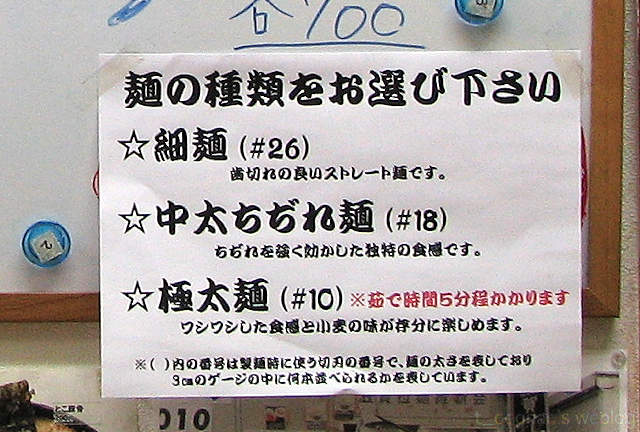 各¥100
麺の種類をお選び下さい
☆細麺(#26)
歯切れの良いストレート麺です。
☆中太ちぢれ麺(#18)
ちぢれを強く効かした独特の食感です。
☆極太麺(#10)※茹で時間5分程かかります
ワシワシした食感と小麦の味が存分に楽しめます。
※( )内の番号は製麺時に使う切刃の番号で、麺の太さを表しており
3㎝のゲージの中に何本並べられるかを表しています。
とこ豚骨
010